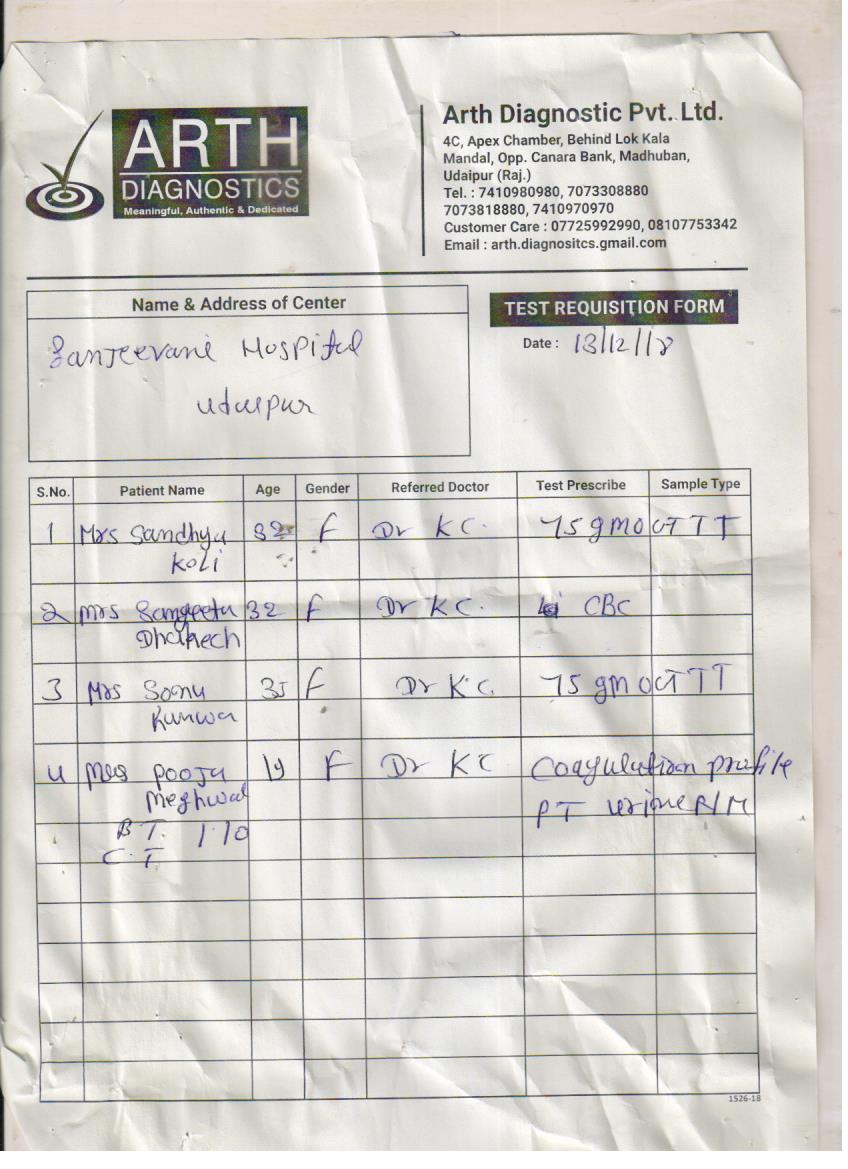 ARTH
DIAGNOSTICS
Meaningful, Authentic & Dedicated
Arth Diagnostic Pvt. Ltd.
4C, Apex Chamber, Behind Lok Kala
Mandal, Opp. Canara Bank, Madhuban,
Udaipur (Raj.)
Tel. : 7410980980, 7073308880
7073818880, 7410970970
Customer Care : 07725992990, 08107753342
Email : arth.diagnositcs.gmail.com
Name & Address of Center
Sanjeevani Hospital
Udaipur
TEST REQUISITION FORM
Date : 13/12/18
S.No. Patient Name Age Gender Referred Doctor Test Prescribe Sample Type
1 Mrs Sandhya 32 F Dr KC. 75 gm OGTTT
Koli
2 Mrs Sangeeta 32 F Dr KC. CBC
3 Mrs Sonu 35 F Dr KC. 75 gm OGTTT
Kunwar
4 Mrs Pooja 19 F Dr KC Coagulation profile
Meghwal PT urine R/M
BT. 1.10
C.T
1526-18